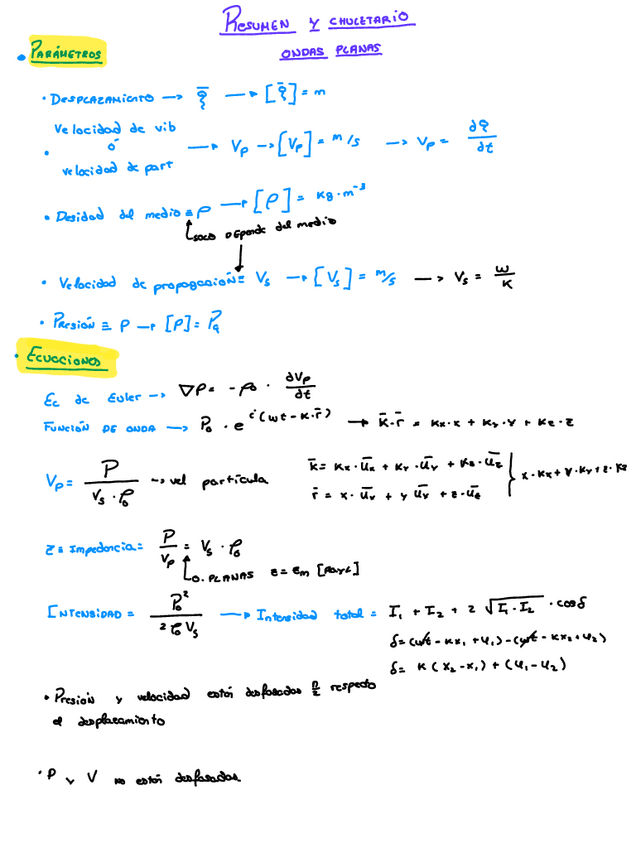 RESUMEN Y CHULETARIO
ONDAS PLANAS
• PARÁMETROS
• DESPLAZAMIENTO → ξ̄ → [ξ̄] = m
Velocidad de vib
• ó → Vp → [Vp] = m/s → Vp = ∂ξ/∂t
velocidad de part
• Desidad del medio ≡ ρ → [ρ] = Kg·m⁻³
SOLO DEPende del medio
• Velocidad de propagación ≡ Vs → [Vs] = m/s → Vs = ω/K
• Presión ≡ P → [P] = Pa
• ECUACIONES
Ec de Euler → ∇P = -ρ₀ · ∂Vp/∂t
FUNCIÓN DE ONDA → P₀ · e^i(ωt - K·r̄) → K̄·r̄ = Kx·x + Ky·y + Kz·z
Vp = P/(Vs·ρ₀) → vel partícula
K̄ = Kx·ūx + Ky·ūy + Kz·ūz
r̄ = x·ūx + y·ūy + z·ūz
x·Kx + y·Ky + z·Kz
Z ≡ Impedancia = P/Vp = Vs · ρ₀
O. PLANAS Z = Zm [Rayl]
INTENSIDAD = P₀²/(2 ρ₀ Vs) → Intensidad total = I₁ + I₂ + 2 √(I₁·I₂) · cosδ
δ = (ωt - Kx₁ + φ₁) - (ωt - Kx₂ + φ₂)
δ = K(x₂ - x₁) + (φ₁ - φ₂)
• Presión y velocidad están desfasados π/2 respecto
al desplazamiento
• P y V no están desfasados